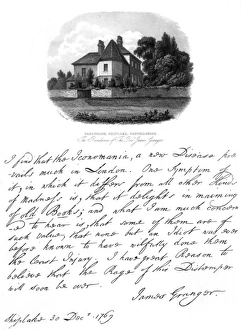 The Residence of The Revd. James Granger.
I find that the Iconomania, a new Disease pre
vails much in London. One Symptom of
it, in which it differs from all other Kinds
of Madness is, that it delights in maiming
of old Books; and what I am much concern
'd to hear is, that some of them are of
such value, that none but an Idiot was ever
before known to have wilfully done them
the least Injury. I have great Reason to
believe that the Rage of this Distemper
will soon be over.
James Granger.
Shiplake 30 Decr. 1769